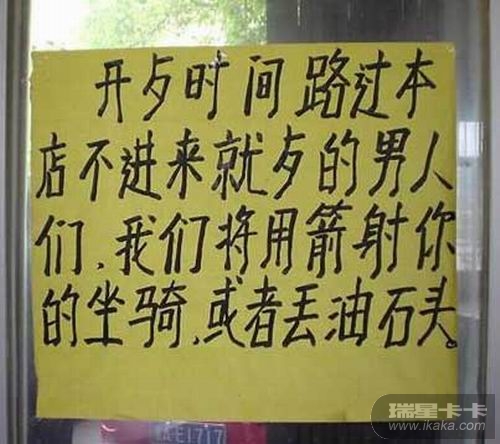 开歺时间路过本
店不进来就歺的男人
们、我们将用箭射你
的坐骑、或者丢油石头。
E1717
瑞星卡卡
www.ikaka.com